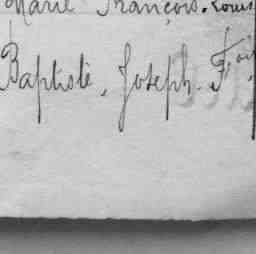 Marie François. Louis
Baptiste, Joseph. F.ois